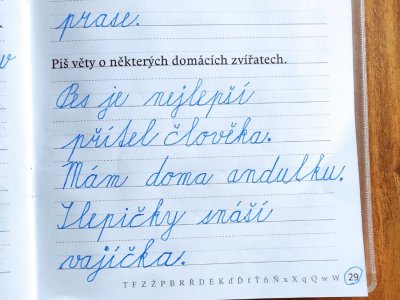 prase.
Piš věty o některých domácích zvířatech.
Pes je nejlepší
přítel člověka.
Mám doma andulku.
Slepičky snáší
vajíčka.
T F Z Ž P B R Ř D E K ď Ď ť Ť ň Ň x X q Q w W 29